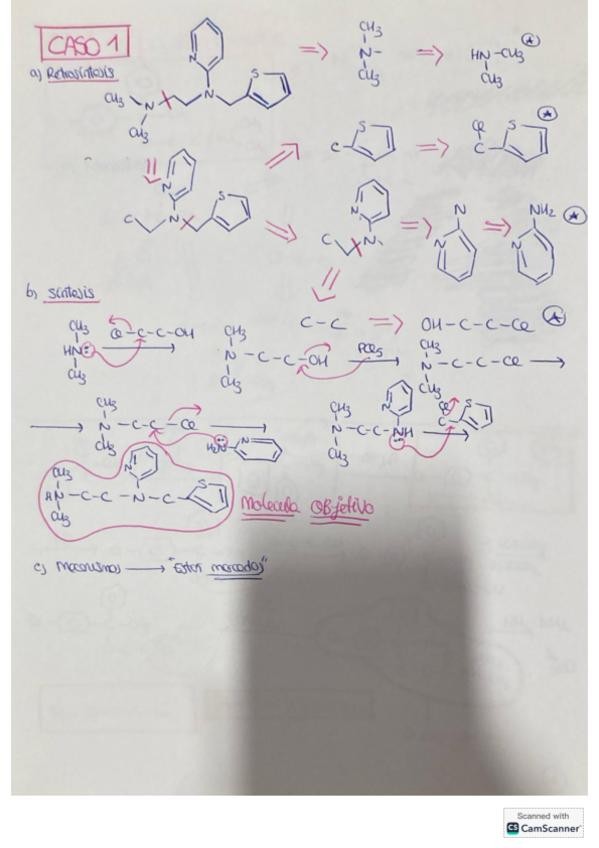 CASO 1
a) Retrosíntesis
CH3
N
CH3
HN-CH3
CH3
N
S
CH3
N
N
CH3
C
S
Cl
C
S
N
N
S
C
N
C
N
N
N
NH2
N
b) Síntesis
C-C
OH-C-C-Cl
CH3
HN:
CH3
Cl-C-C-OH
CH3
N-C-C-OH
CH3
PCl5
CH3
N-C-C-Cl
CH3
CH3
N-C-C-Cl
CH3
H2N
N
CH3
N-C-C-NH
CH3
N
Cl
C
S
CH3
N-C-C-N-C
CH3
N
S
Molecula Objetivo
c) Mecanismos → "Estan marcados"
Scanned with
CS CamScanner